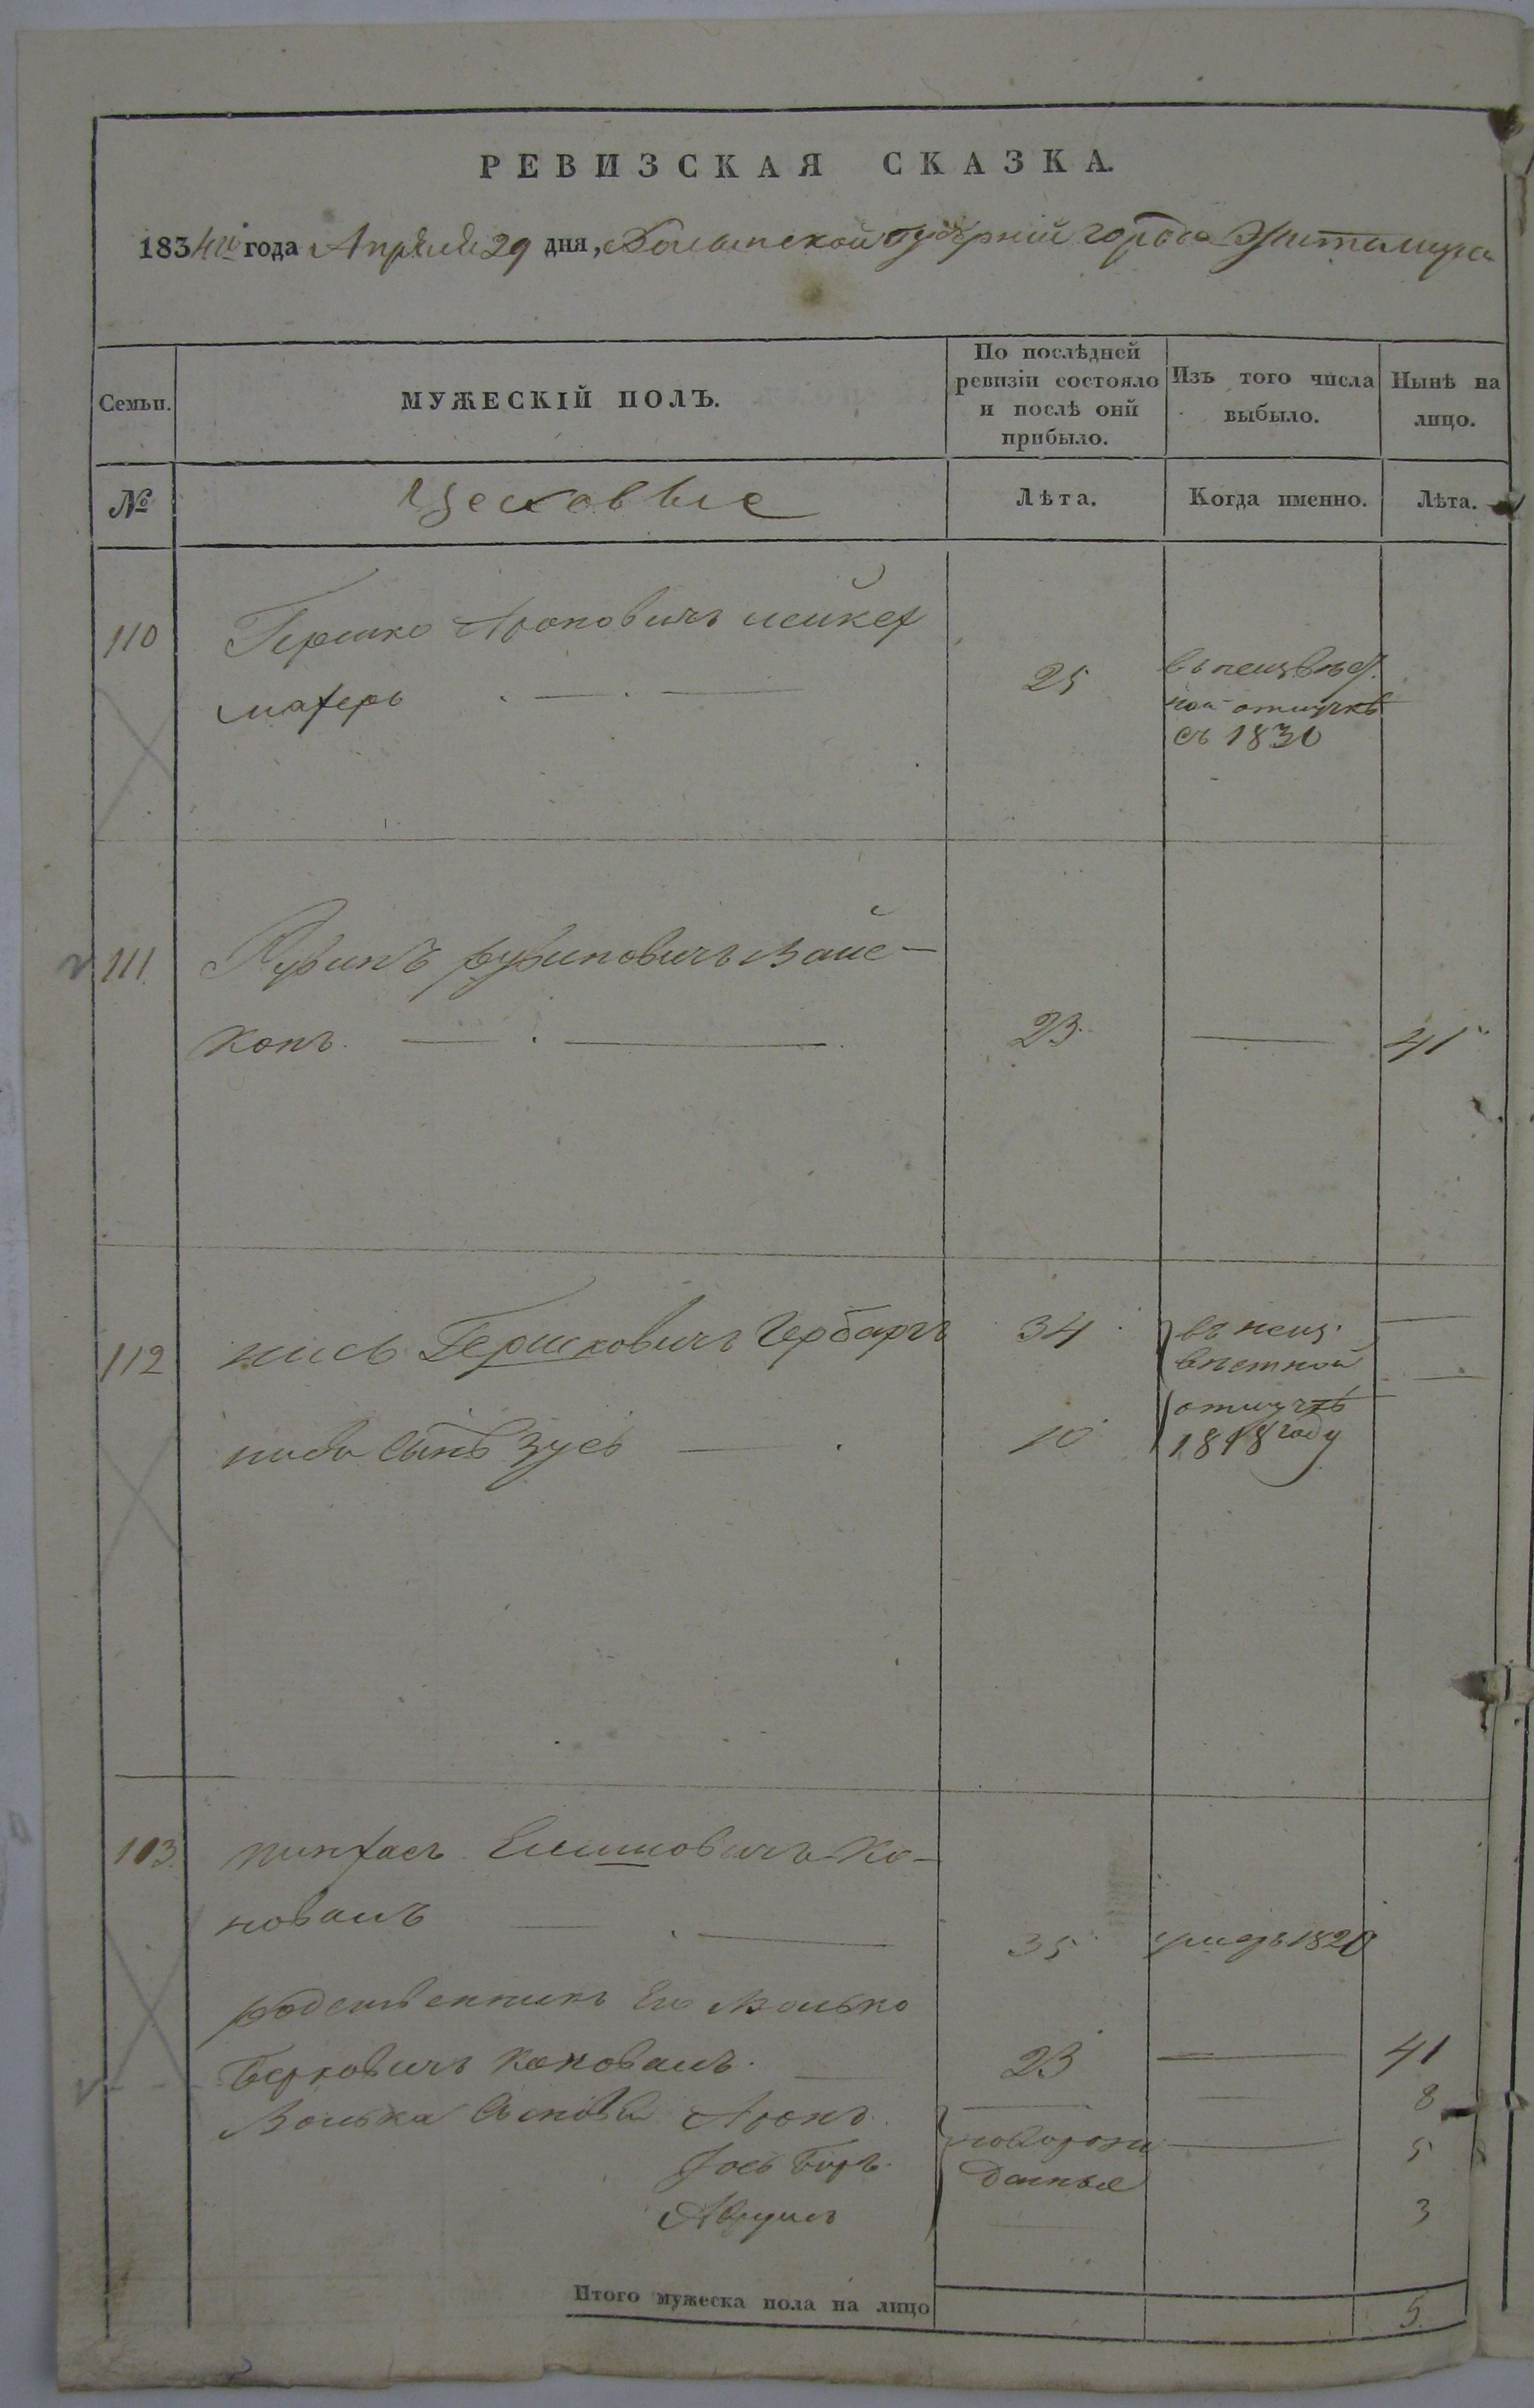 РЕВИЗСКАЯ СКАЗКА.
1834го года Апрѣля 29 дня, Волынской губѣрніи города Житомира
Семьи.
МУЖЕСКІЙ ПОЛЪ.
По послѣдней ревизіи состояло и послѣ оній прибыло.
Изъ того числа выбыло.
Нынѣ на лицо.
№
Цеховые
Лѣта.
Когда именно.
Лѣта.
110
Гершко Ароновичъ
махеръ
25
въ неизвѣст
ной отлучкѣ
съ 1830
111
Рувинъ рувиновичъ Вайс-
конъ.
23
41
112
нись Гершковичъ Гербаръ
34
въ неиз
вѣстной
отлучкѣ
1818 году
ниси сынъ Зусь
10
113
пинхасъ Елиововичъ Ко-
новалъ
35
умеръ 1820
родственникъ Его Волько
Берковичъ Коновалъ.
23
41
Волька Сыновья Аронъ.
8
Іось Беръ.
новорож
денные
5
Аврумъ
3
Итого мужеска пола на лицо
5.